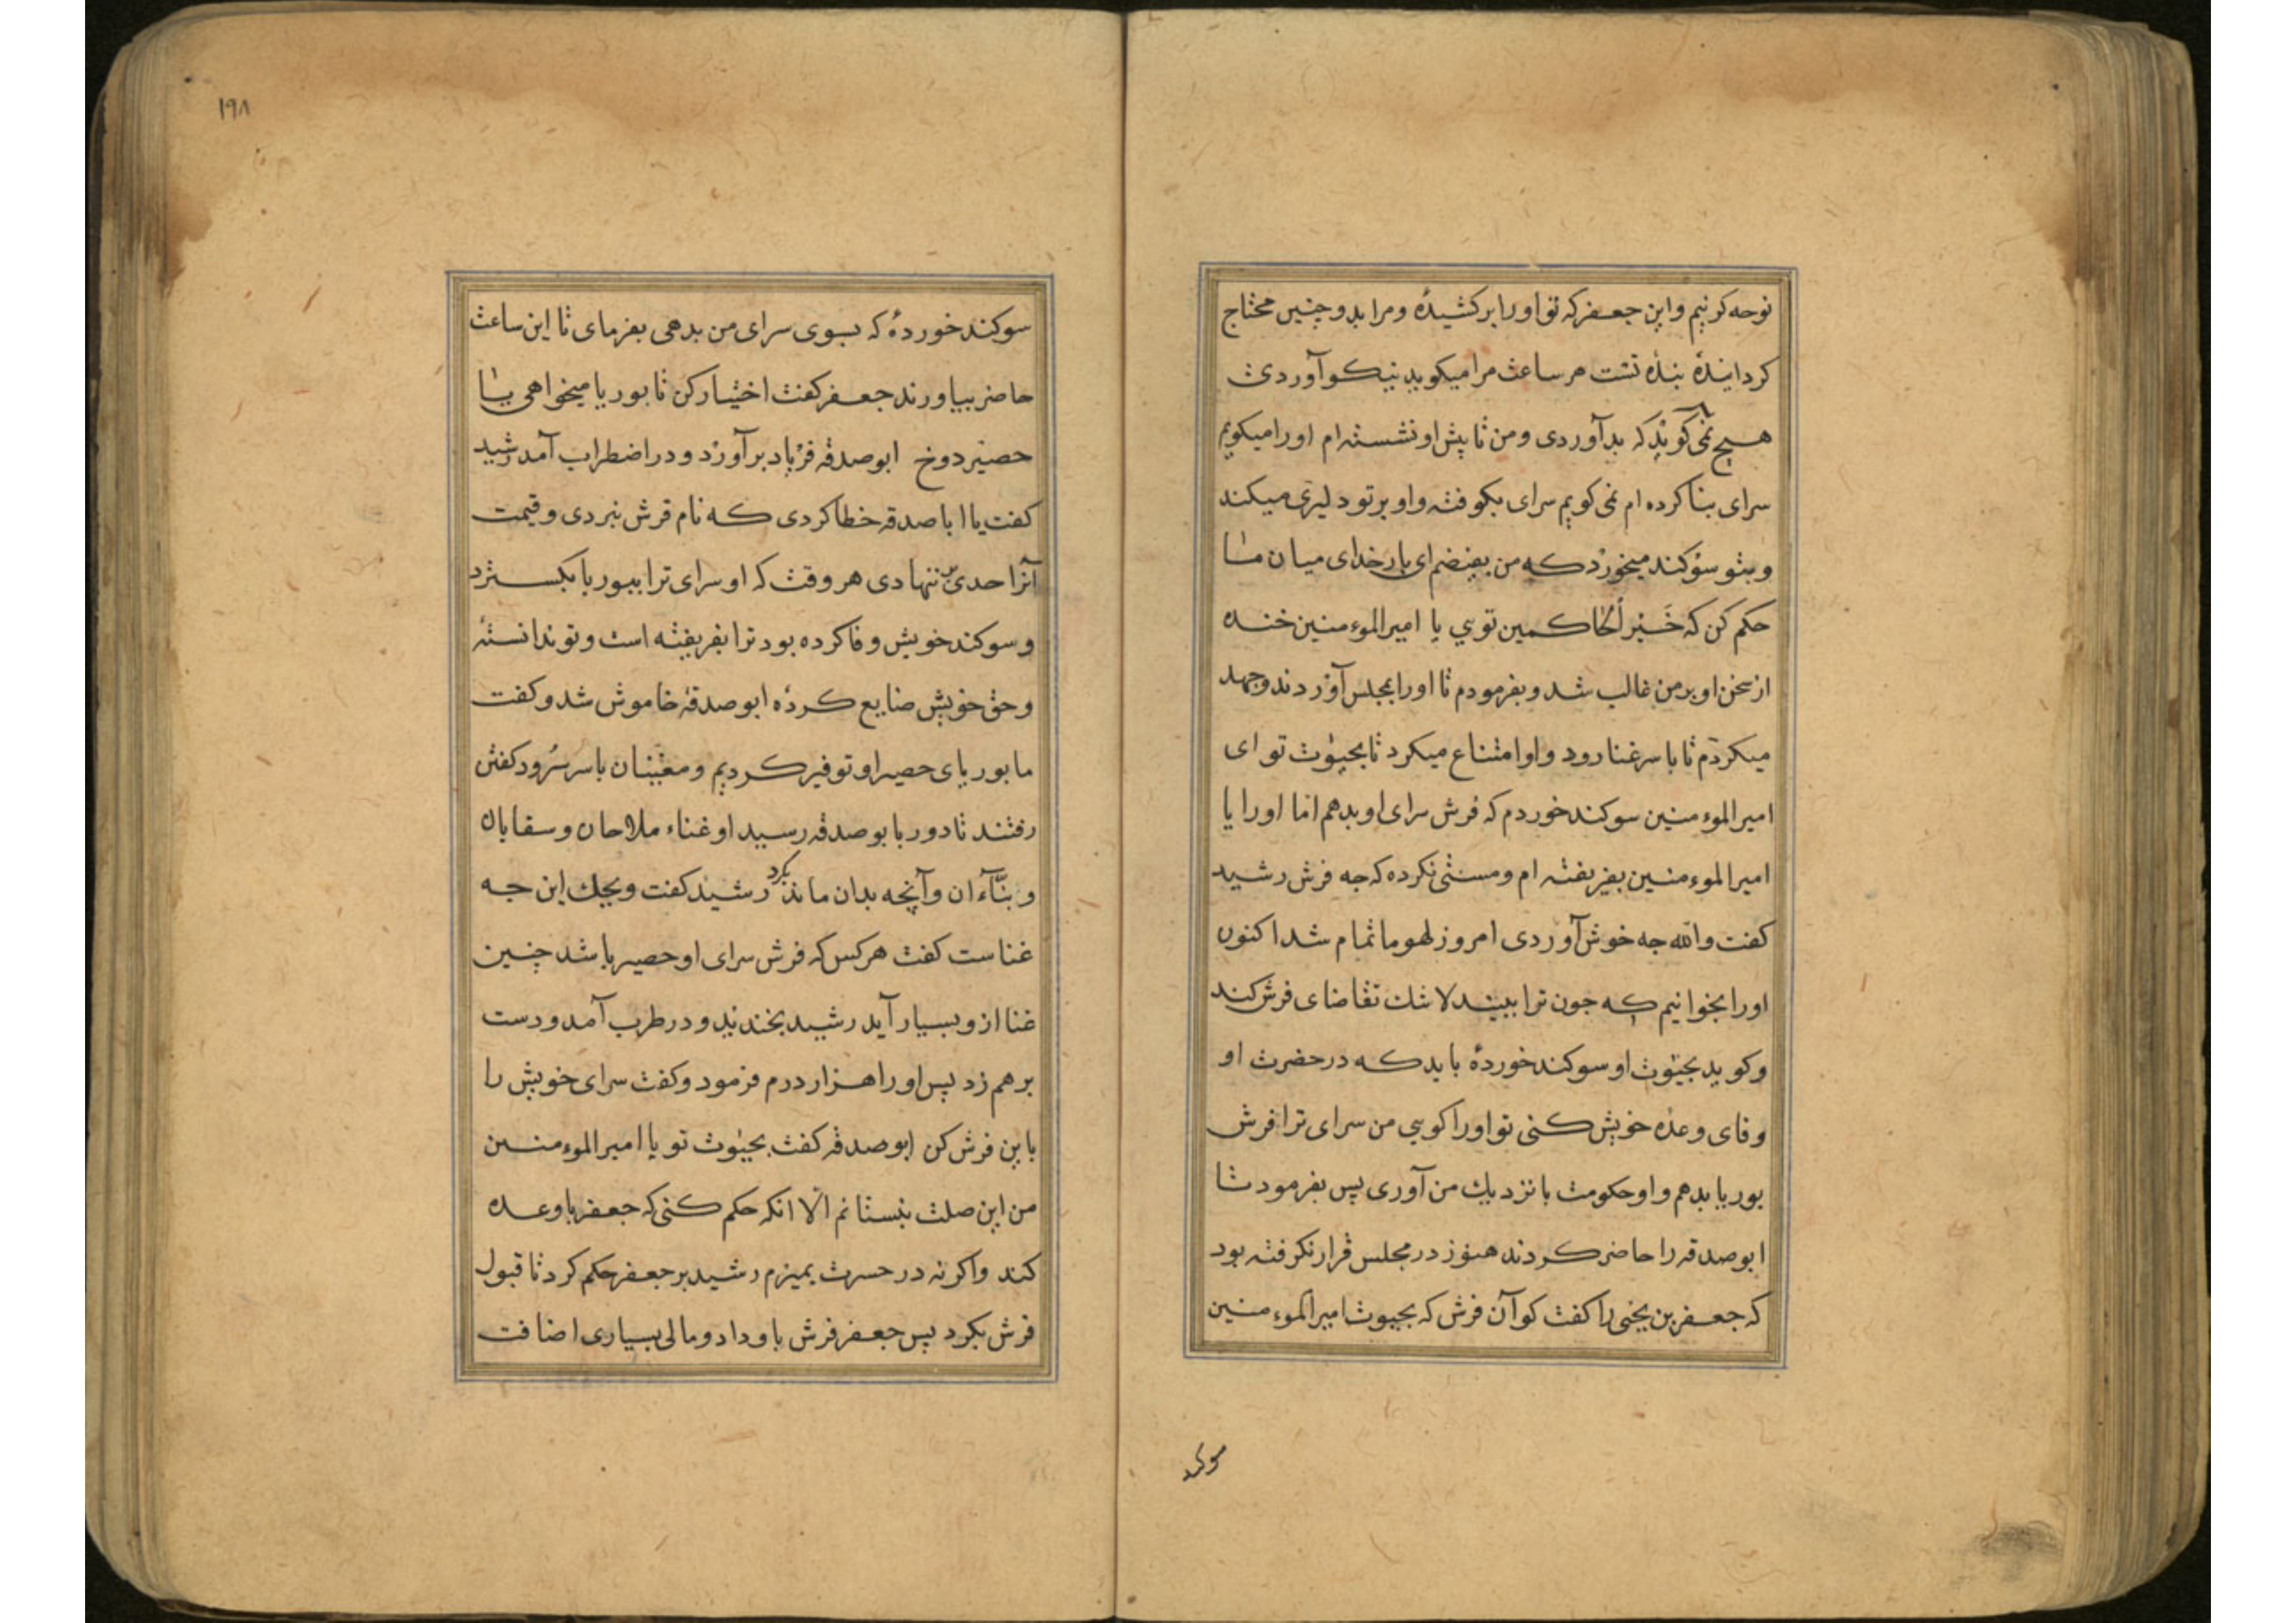 نوحه کرنیم واین جعفر که تو اورا برکشیدۀ ومرا بدو چنین محتاج
کردانیدۀ بنده تست هر ساعت مرا میکوید نیکو آوردی
هیچ نمی کوید که بد آوردی ومن تا پیش او نشسته ام اورا میکویم
سرای بنا کرده ام نمی کویم سرای بکوفته واو بر تو دلیری میکند
وبتو سوکند میخورد که من بغیضم ای بار خدای میان ما
حکم کن که خَیْر اُلحاکمین تویی یا امیر الموءمنین خنده
از سخن او بر من غالب شد وبفرمودم تا اورا بمجلس آوردند وجهد
میکردم تا با سر غنا رود واو امتناع میکرد تا بحیٰوت تو ای
امیر الموءمنین سوکند خوردم که فرش سرای او بدهم اما اورا یا
امیر الموءمنین بفریفته ام ومستثی نکرده که جه فرش رشید
کفت والله جه خوش آوردی امروز لهو ما تمام شد اکنون
اورا بخوانیم که جون ترا بیند لا شك تقاضای فرش کند
وکوید بحیٰوت او سوکند خوردۀ باید که در حضرت او
وفای وعده خویش کنی تو اورا کویی من سرای ترا فرش
بوریا بدهم واو حکومت با نزدیك من آوری پس بفرمود تا
ابو صدقه را حاضر کردند هنوز در مجلس قرار نکرفته بود
که جعفر بن یحیی را کفت کو آن فرش که بحیوت امیر الموءمنین
سوکند
۱۹۸
سوکند خوردۀ که بسوی سرای من بدهی بفرمای تا این ساعت
حاضر بیاورند جعفر کفت اختیار کن تا بوریا میخواهی یا
حصیر دوخ ابو صدقه فریاد برآورد ودر اضطراب آمد رشید
کفت یا ابا صدقه خطا کردی که نام فرش نبردی وقیمت
آنرا حدی ننهادی هر وقت که او سرای ترا ببوریا بکسترد
وسوکند خویش وفا کرده بود ترا بفریفته است وتو ندانستۀ
وحق خویش ضایع کردۀ ابو صدقه خاموش شد وکفت
ما بوریای حصیر او توفیر کردیم ومغنّیان با سر سُرود کفتن
رفتند تا دور با بو صدقه رسید او غناء ملاحان وسقایان
وبنّآءان وآنچه بدان ماند بکرد رشید کفت ویحك این جه
غناست کفت هر کس که فرش سرای او حصیر باشد چنین
غنا ازو بسیار آید رشید بخندید ودر طرب آمد ودست
بر هم زد پس اورا هزار درم فرمود وکفت سرای خویش را
باین فرش کن ابو صدقه کفت بحیٰوت تو یا امیر الموءمنین
من این صلت نبستانم الّا انکه حکم کنی که جعفر با وعده
کند واکر نه در حسرت بمیرم رشید بر جعفر حکم کرد تا قبول
فرش بکرد پس جعفر فرش باو داد ومالی بسیاری اضافت